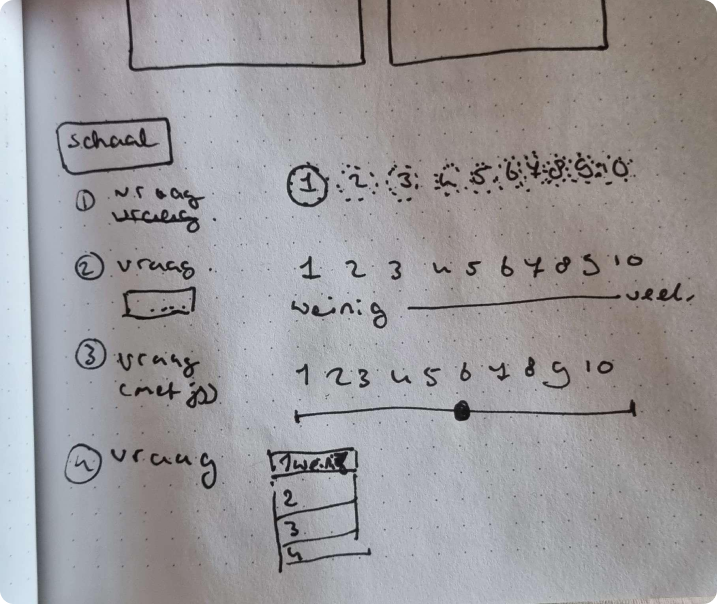 schaal
① vraag
1 2 3 4 5 6 7 8 9 10
② vraag.
1 2 3 4 5 6 7 8 9 10
....
weinig veel.
③ vraag
1 2 3 4 5 6 7 8 9 10
(met js)
④ vraag
1 weinig
2
3
4